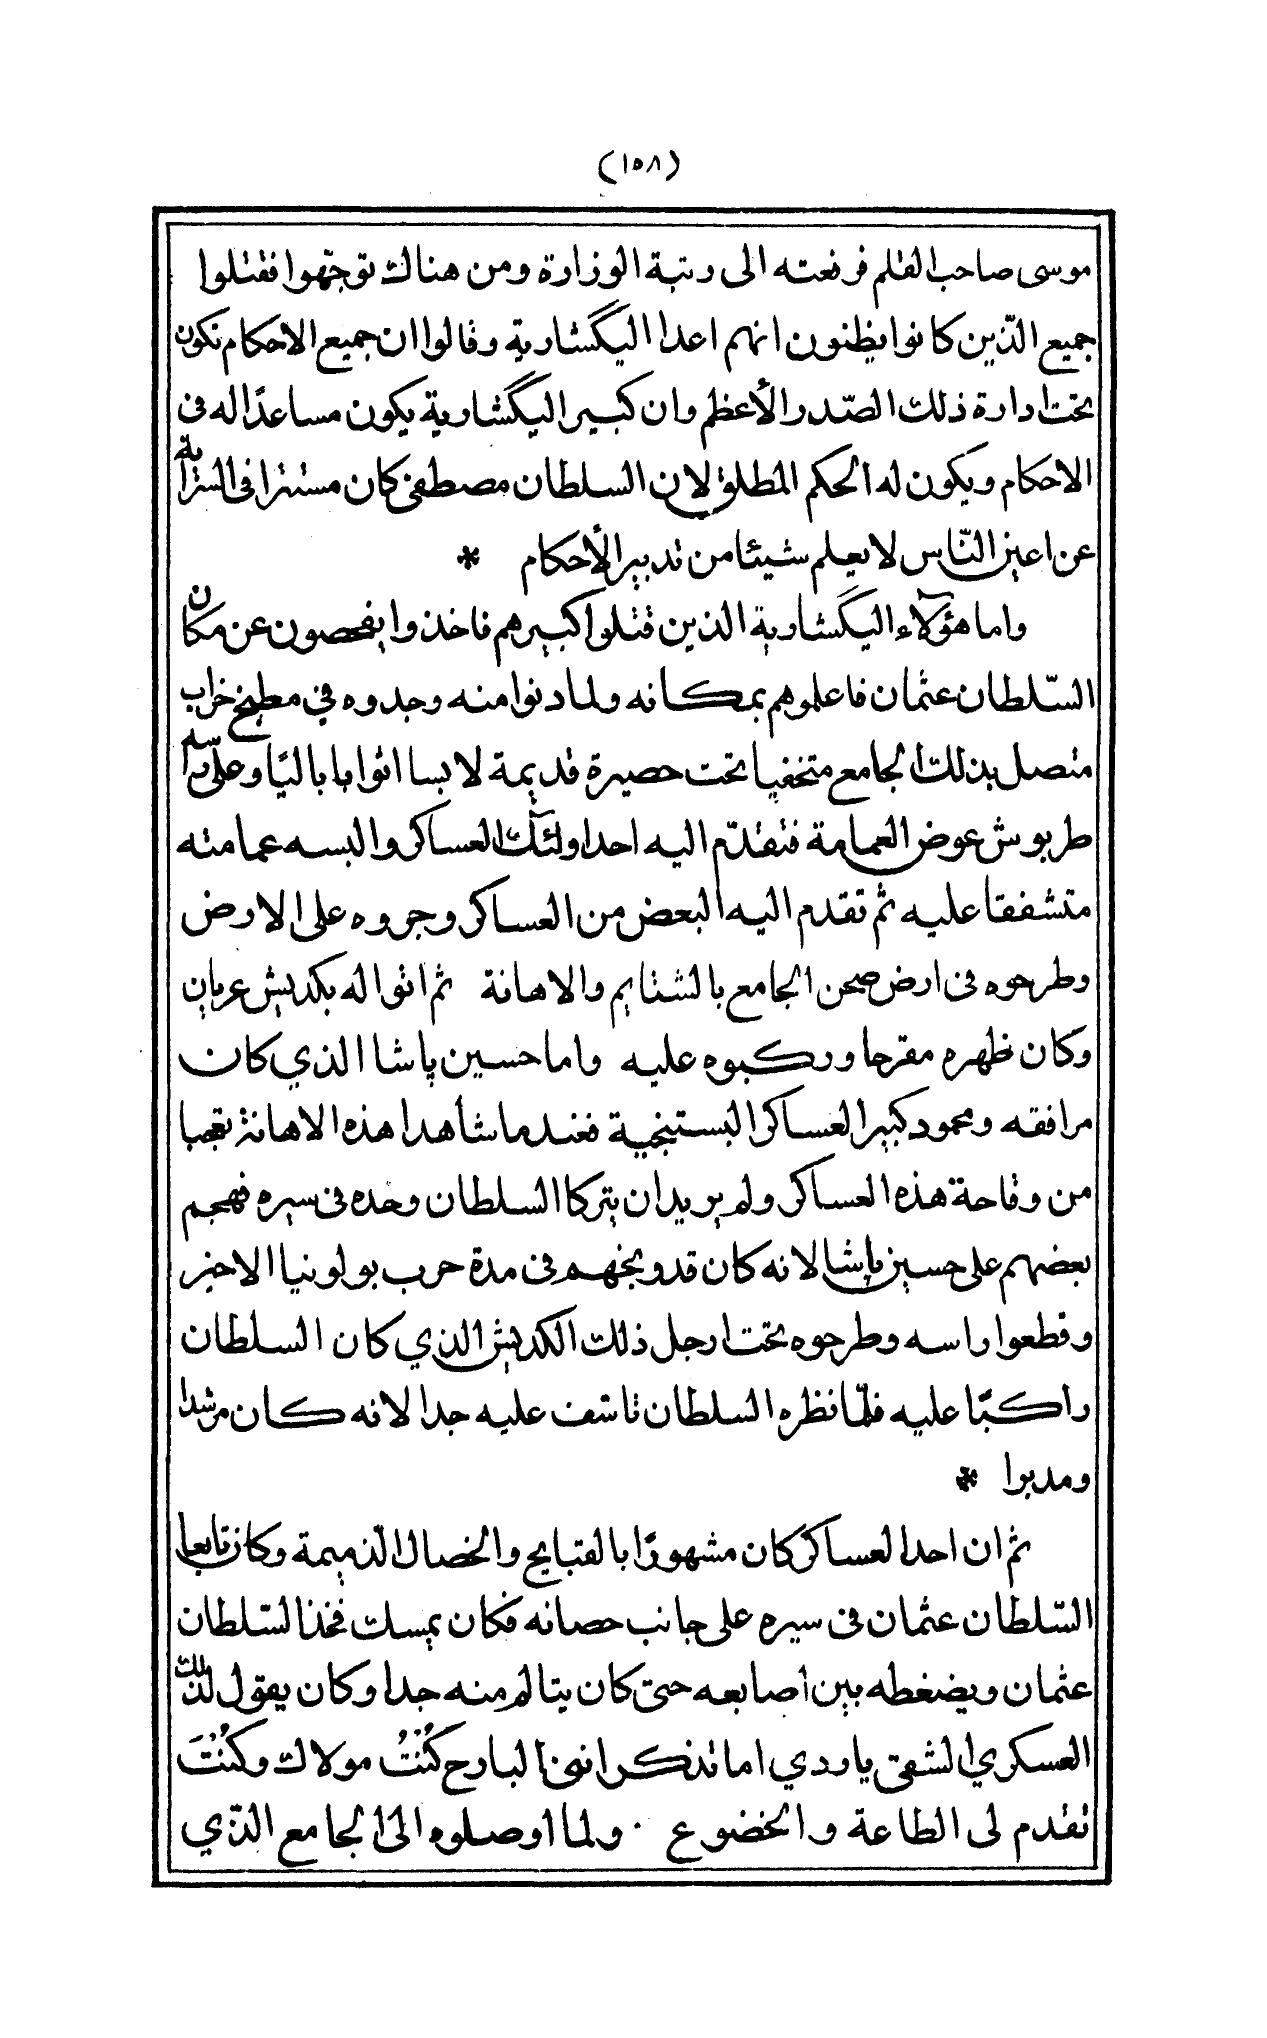 (١٥٨)
موسى صاحب القلم فرفعته الى رتبة الوزارة ومن هناك توجّهوا فقتلوا
جميع الذّين كانوا يظنون انهم اعدا اليگشارية وقالوا ان جميع الاحكام تكون
تحت ادارة ذلك الصّدر الأعظم وان كبير اليگشارية يكون مساعدًا له فى
الاحكام ويكون له الحكم المطلق لان السلطان مصطفى كان مستترا فى السراية
عن اعين النّاس لا يعلم شيئا من تدبير الأحكام *
واما هؤلآء اليگشارية الذين قتلوا كبيرهم فاخذوا يفحصون عن مكان
السّلطان عثمان فاعلموهم بمكانه ولما دنوا منه وجدوه في مطبخ خراب
متصل بذلك الجامع متخفيا تحت حصيرة قديمة لابسا اثوابا باليًا وعلى راسه
طربوش عوض العمامة فتقدّم اليه احد اولئك العساكر والبسه عمامته
متشفقا عليه ثم تقدم اليه البعض من العساكر وجروه على الارض
وطرحوه فى ارض صحن الجامع بالشتايم والاهانة ثم اتوا له بكديش عريان
وكان ظهره مقرحا وركبوه عليه واما حسين پاشا الذي كان
مرافقه ومحمود كبير العساكر البستنجية فعند ما شاهدا هذه الاهانة تعجبا
من وقاحة هذه العساكر ولم يريدان يتركا السلطان وحده فى سيره فهجم
بعضهم على حسين پاشا لانه كان قد وبخهم فى مدة حرب بولونيا الاخير
وقطعوا راسه وطرحوه تحت ارجل ذلك الكديش الذي كان السلطان
راكبًا عليه فلمّا نظره السلطان تاسّف عليه جدا لانه كان مرشدا
ومدبرا *
ثم ان احد العساكر كان مشهورًا بالقبايح والخصال الذّميمة وكان تابعا
السّلطان عثمان فى سيره على جانب حصانه فكان يمسك فخذ السّلطان
عثمان ويضغطه بين اصابعه حتى كان يتالم منه جدا وكان يقول لذلك
العسكري الشقى يا ودي اما تذكر انى البارح كُنْتُ مولاك وكُنْتَ
تقدم لى الطاعة والخضوع · ولما اوصلوه الى الجامع الذّي